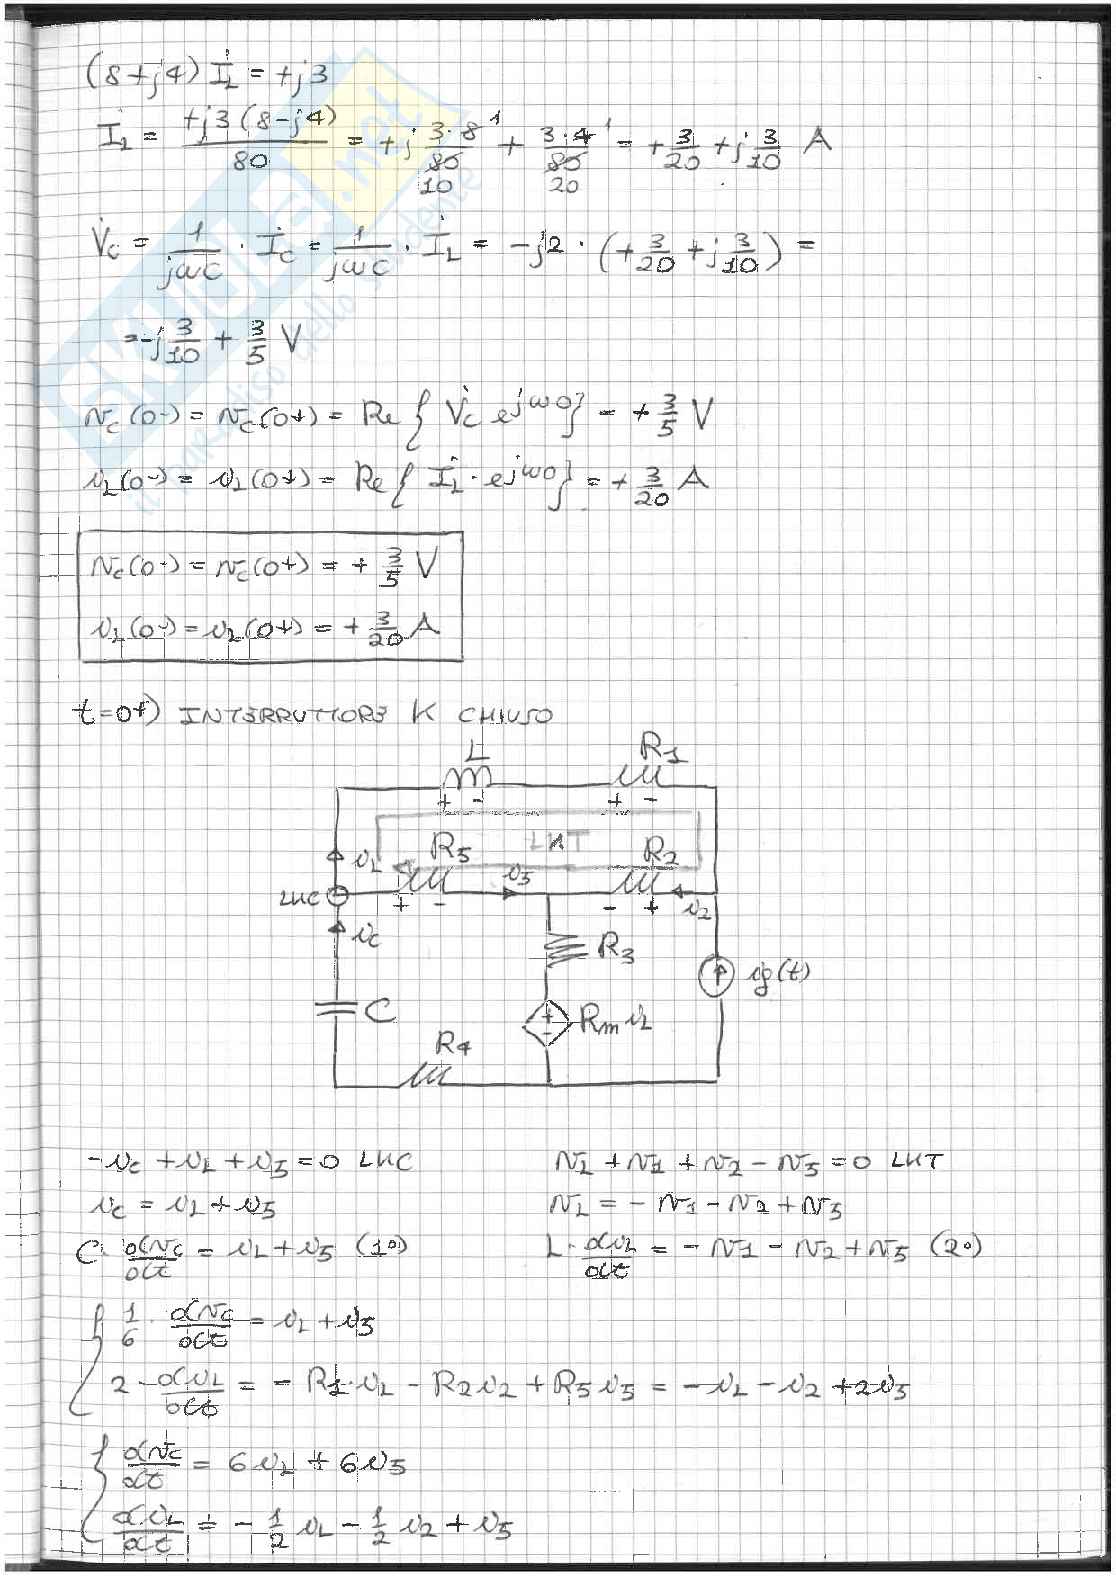 (8+j4) İL = +j3
İL = +j3(8-j4)/80 = +j 3·8/80 1/10 + 3·4/80 1/20 = +3/20 + j 3/10 A
V̇C = 1/jωC · İC = 1/jωC · İL = -j2 · (+3/20 + j 3/10) =
= -j 3/10 + 3/5 V
vC(0-) = vC(0+) = Re{ V̇C e^jω0} = + 3/5 V
iL(0-) = iL(0+) = Re{ İL · e^jω0} = + 3/20 A
vC(0-) = vC(0+) = + 3/5 V
iL(0-) = iL(0+) = + 3/20 A
t=0+) INTERRUTTORE K CHIUSO
L R1
+ - + -
LKT
iL R5 i5 R2
LKC + - - + i2
iC R3
ig(t)
C + - Rm iL
R4
-iC + iL + i5 = 0 LKC
iC = iL + i5
C · dvC/dt = iL + i5 (1°)
vL + v1 + v2 - v5 = 0 LKT
vL = - v1 - v2 + v5
L · diL/dt = - v1 - v2 + v5 (2°)
{ 1/6 · dvC/dt = iL + i5
2 · diL/dt = - R1·iL - R2 i2 + R5 i5 = - iL - i2 + 2i5
{ dvC/dt = 6iL + 6i5
diL/dt = - 1/2 iL - 1/2 i2 + i5
skuola.net
il paradiso dello studente